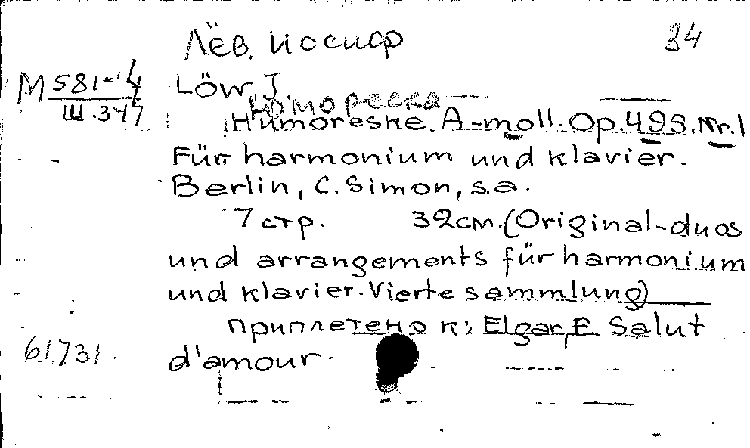 Лёв, Иосиф 34
М 581-4 Löw J.
Ш.347 Юмореска
Humoreske. A-moll. Op. 493. Nr. 1
Für harmonium und klavier.
Berlin, C. Simon, s.a.
7 стр. 32см. (Original-duos
und arrangements für harmonium
und klavier. Vierte sammlung)
приплетено к: Elgar, E. Salut
61731. d'amour.